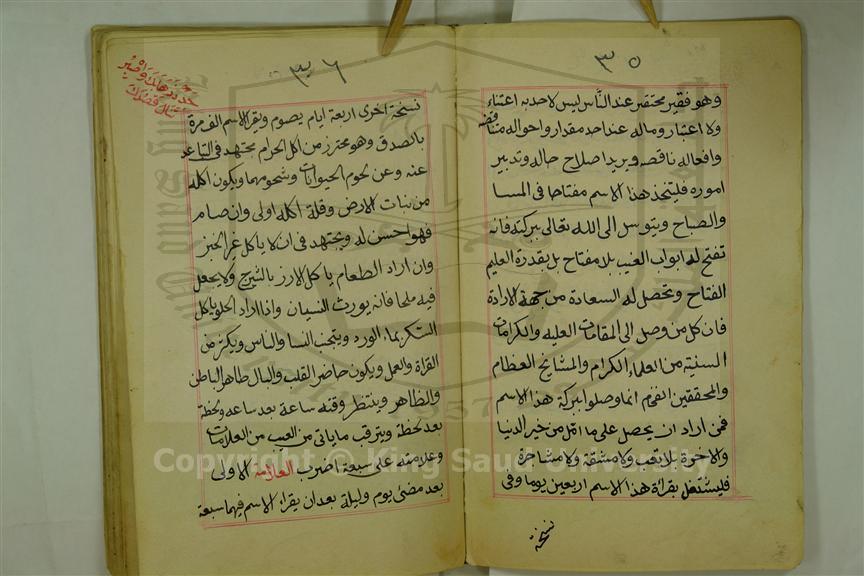 ٣٥
وهو فقير محتقر عند الناس ليس لاحد به اعتناء
ولا اعتبار وماله عند احد مقدار واحواله متناقضة
وافعاله ناقصه ويريد اصلاح حاله وتدبير
اموره فليتخذ هذا الاسم مفتاحا فى المسا
والصباح ويتوسل الى الله تعالى ببركته فانه
تفتح له ابواب الغيب بلا مفتاح بل بقدرة العليم
الفتاح وتحصل له السعادة من جهة الارادة
فان كل من وصل الى المقامات العليه والكرامات
السنية من العلماء الكرام والمشايخ العظام
والمحققين الفخم انما وصلوا ببركة هذا الاسم
فمن اراد ان يحصل على ما امل من خير الدنيا
والاخرة بلا تعب ولا مشقة ولا مشاجرة
فليشتغل بقراة هذا الاسم اربعين يوما وفى
نسخة
٣٦
نسخة اخرى اربعة ايام يصوم ويقرا الاسم الف مرة
بالصدق وهو محترز من اكل الحرام مجتهد فى التباعد
عنه وعن لحوم الحيوانات وشحومهما ويكون اكله
من نبات الارض وقلة اكله اولى وان صام
فهو احسن له ويجتهد فى ان لا ياكل غير الخبز
وان اراد الطعام ياكل الارز بالشيرج ولا يجعل
فيه ملحا فانه يورث النسيان واذا اراد الحلو ياكل
السكر بماء الورد ويتجنب النسا والناس ويكثر من
القراة والعمل ويكون حاضر القلب والبال طاهر الباطن
والظاهر وينتظر وقته ساعة بعد ساعه ولحظة
بعد لحظة ويترقب ما ياتى من الغيب من العلامات
وعلامته على سبعة اضرب العلامة الاولى
بعد مضى يوم وليلة بعد ان يقراء الاسم فيهما سبعة
Copyright © King Saud University
1957